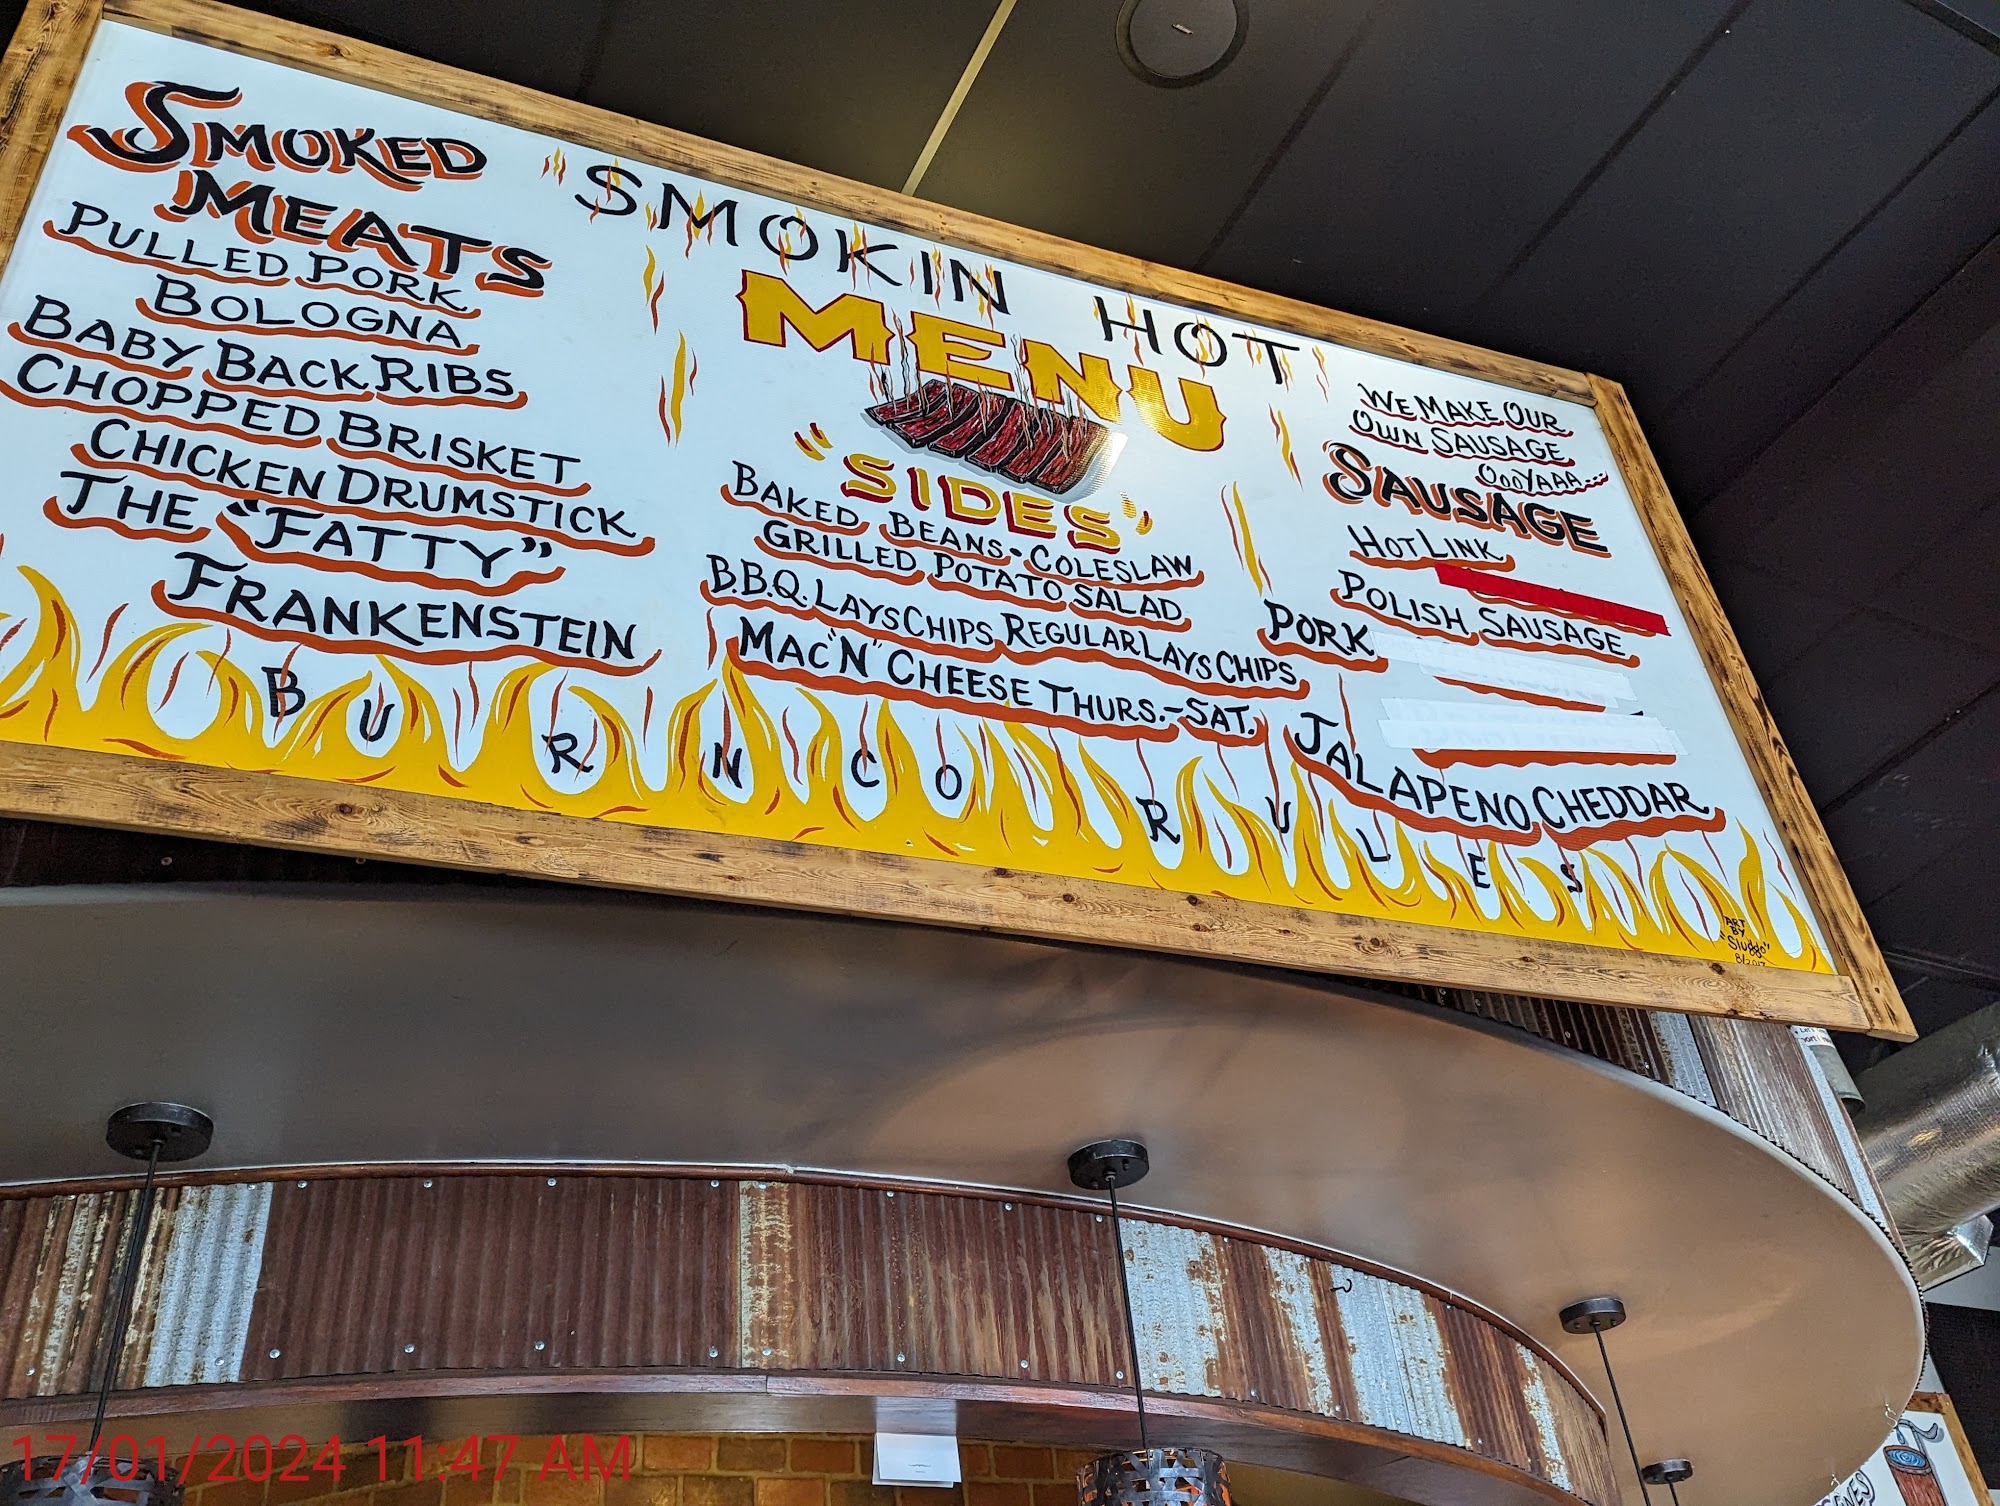 SMOKED
MEATS
PULLED PORK
BOLOGNA
BABY BACK RIBS
CHOPPED BRISKET
CHICKEN DRUMSTICK
THE "FATTY"
FRANKENSTEIN
SMOKIN HOT
MENU
"SIDES"
BAKED BEANS • COLESLAW
GRILLED POTATO SALAD
B.B.Q. LAYS CHIPS REGULAR LAYS CHIPS
MAC "N" CHEESE THURS.-SAT.
WE MAKE OUR
OWN SAUSAGE
OOOYAAA...
SAUSAGE
HOT LINK
POLISH SAUSAGE
PORK
JALAPENO CHEDDAR
BURN CO RULES
ART
BY
"Sluggo"
8/2017
17/01/2024 11:47 AM